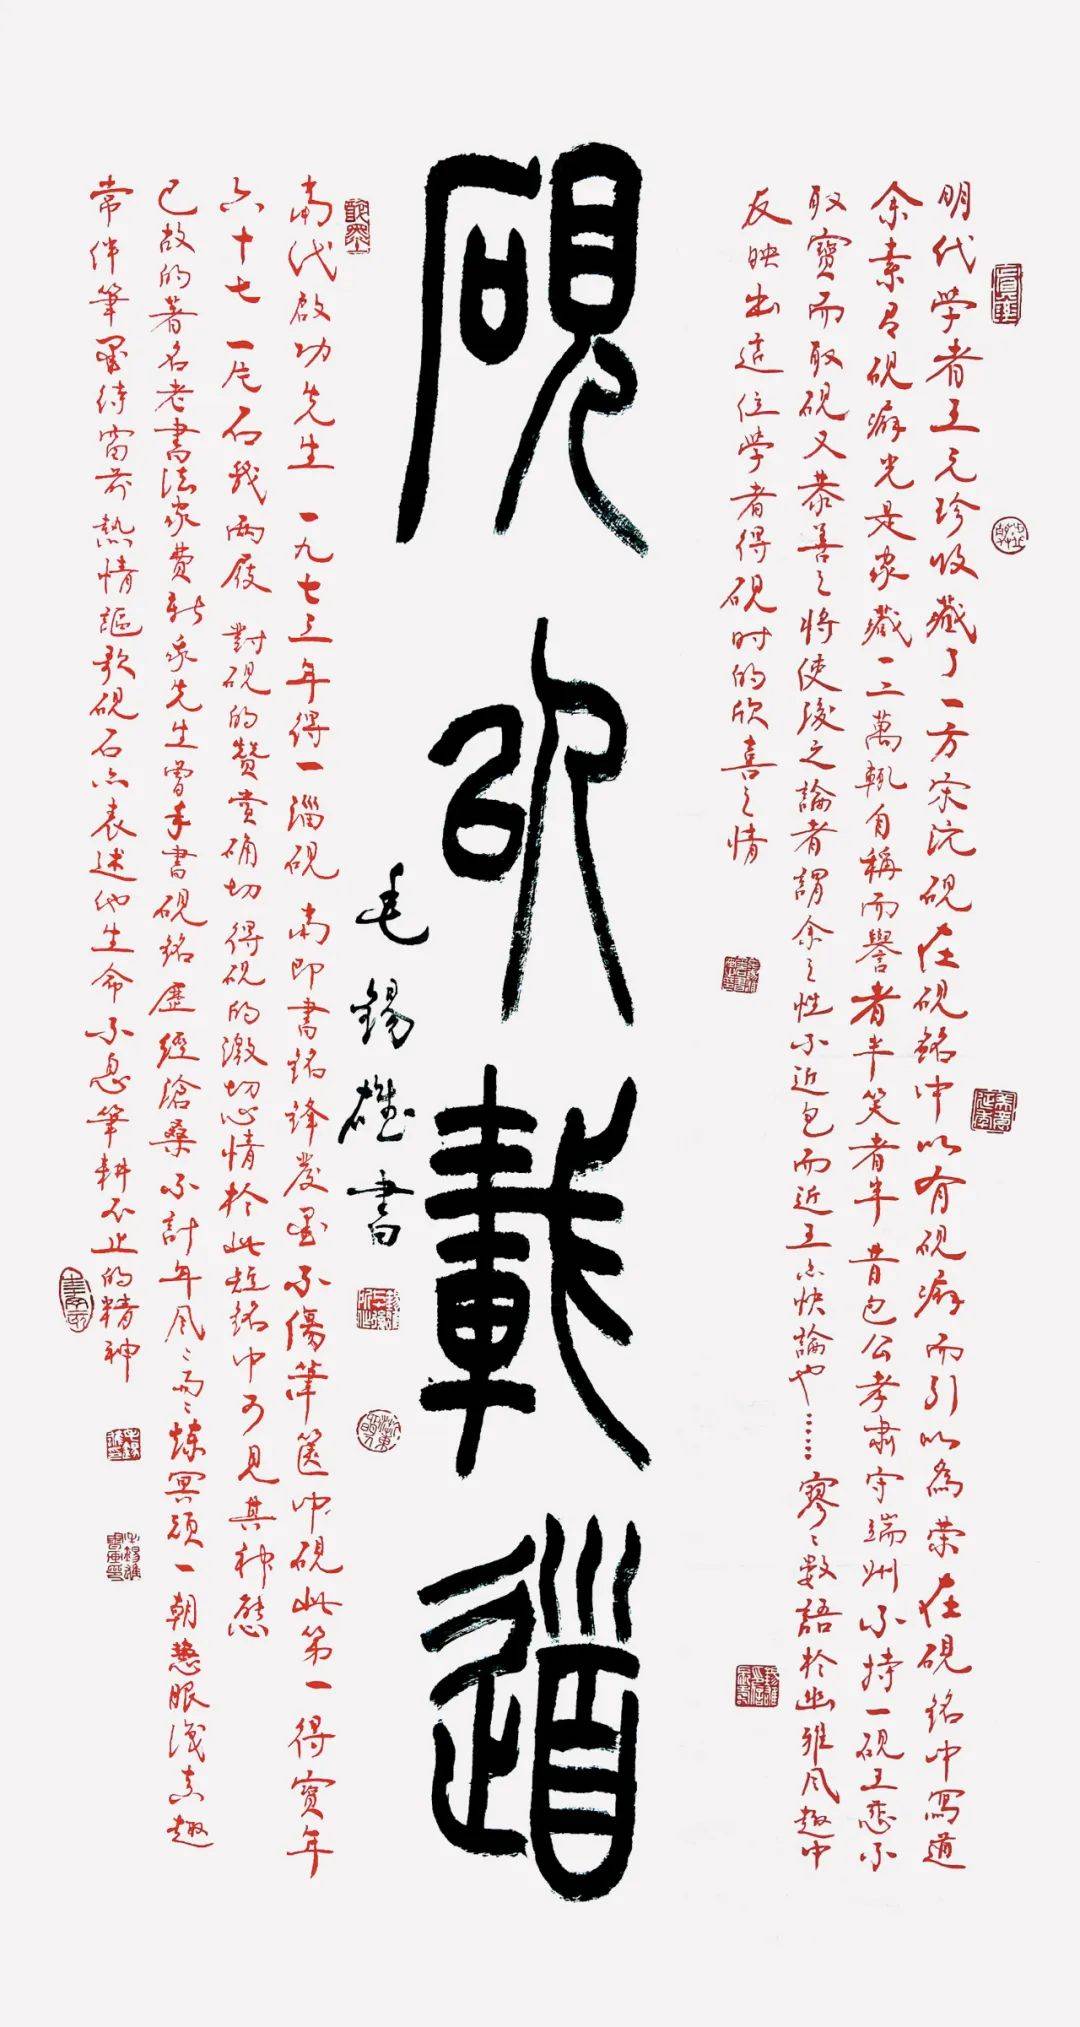 明代学者王元珍收藏了一方宋沅砚在砚銘中以有砚癖而引以為荣在砚銘中寫道
余素有砚癖光是家藏一二萬輒自稱而譽者半笑者半昔包公孝肅守端州不持一砚王恶不
取寶而取砚又恭善之將使後之論者謂余之性不近包而近王亦快論也……寥々數語於幽雅风趣中
反映出這位学者得砚时的欣喜之情
砚以載道
毛錫雄書
當代啟功先生一九七三年得一淄砚當即書銘鋒發墨不傷筆箧中砚此第一得寶年
六十七一片石幾兩屐對砚的赞赏确切得砚的激切心情於此短銘中可見其神慰
已故的著名老書法家費新我先生曾手書砚銘歷經滄桑不計年风々雨々煉冥頑一朝慧眼識真趣
常伴筆墨待窗前热情謳歌砚石亦表述他生命不息筆耕不止的精神